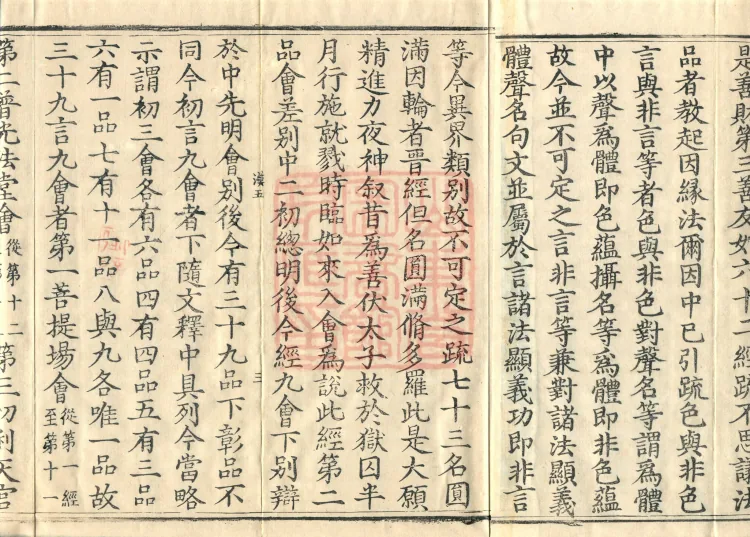 是善財第三善友如六十二經跡不思議法
品者教起因緣法爾因中已引疏色與非色
言與非言等者色與非色對聲名等謂為體
中以聲為體即色蘊攝名等為體即非色蘊
故今並不可定之言非言等兼對諸法顯義
體聲名句文並屬於言諸法顯義功即非言
等今異界類別故不可定之疏七十三名圓
滿因輪者晉經但名圓滿脩多羅此是大願
精進力夜神叙昔為善伏太子救於獄囚半
月行施就戮時臨如來入會為說此經第二
品會差別中二初總明後今經九會下別辯
漢五
三
於中先明會別後今有三十九品下彰品不
同今初言九會者下隨文釋中具列今當略
示謂初三會各有六品四有四品五有三品
六有一品七有十一品八與九各唯一品故
三十九言九會者第一菩提場會從第一經至第十一
第二普光法堂會從第十二 第三忉利天宮